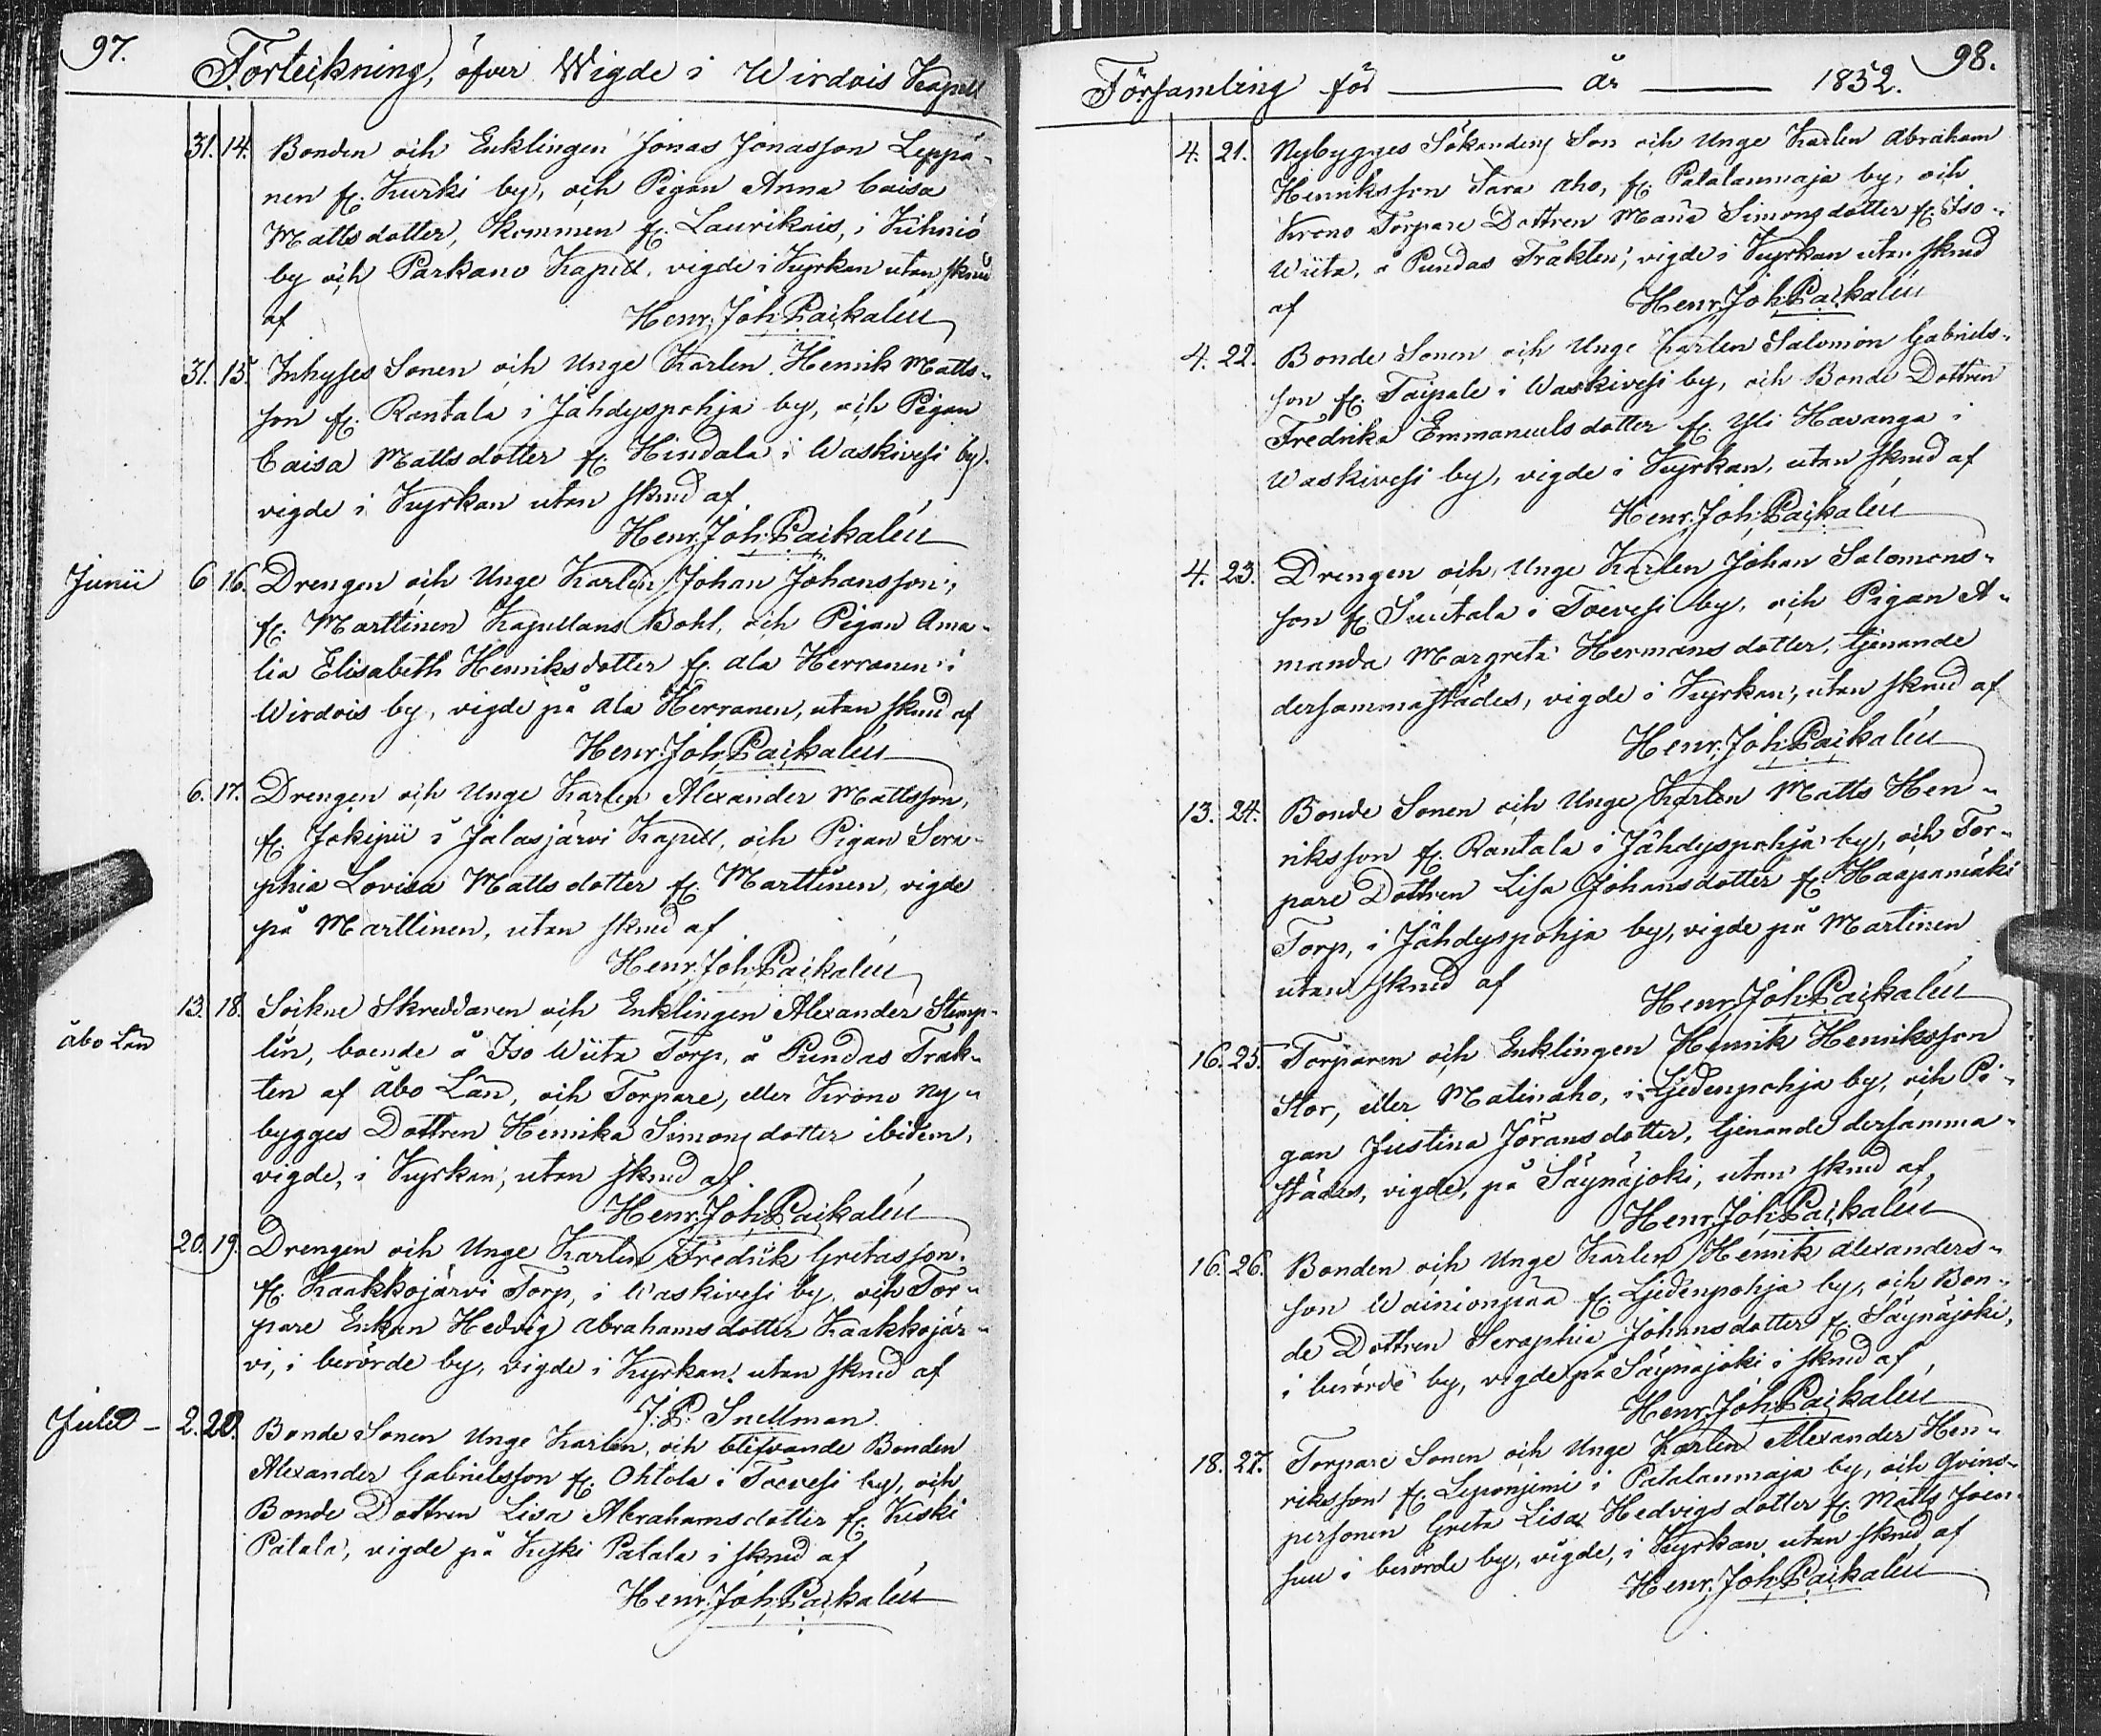 97.
Förteckning, öfver Wigde i Wirdois Kapell
31. 14. Bonden och Enklingen Jonas Jonasson Leppä-
nen fr. Kurki by, och Pigan Anna Caisa
Mattsdotter, kommen fr. Laurikais, i Kihniö
by och Parkano Kapell, vigde i Kyrkan utan skrud
af Henr. Joh. Paikalén
31. 15. Inhyses Sonen och Unge Karlen Henrik Matts-
son fr. Rantala i Jähdyspohja by, och Pigan
Caisa Mattsdotter fr. Hindala i Waskivesi by.
vigde i Kyrkan utan skrud af
Henr. Joh. Paikalén
Junii 6 16. Drengen och Unge Karlen Johan Johansson,
fr. Marttinen Kapellans Bohl, och Pigan Ama-
lia Elisabeth Henriksdotter fr. Ala Herranen i
Wirdois by, vigde på Ala Herranen, utan skrud af
Henr. Joh. Paikalén
6. 17. Drengen och Unge Karlen Alexander Mattsson,
fr. Jokipii i Jalasjärvi Kapell, och Pigan Sera-
phia Lovisa Mattsdotter fr. Marttinen, vigde
på Marttinen, utan skrud af
Henr. Joh. Paikalén
13. 18. Sockne Skreddaren och Enklingen Alexander Stenp-
Åbo Län
lin, boende å Iso Wiita Torp, å Pundas Trak-
ten af Åbo Län, och Torpare, eller Krono Ny-
bygges Dottren Henrika Simonsdotter ibidem,
vigde, i Kyrkan, utan skrud af
Henr. Joh. Paikalén
20. 19. Drengen och Unge Karlen Fredrik Gretasson,
fr. Kaakkojärvi Torp, i Waskivesi by, och Tor-
pare Enkan Hedvig Abrahamsdotter Kaakkojär-
vi, i berörde by, vigde i Kyrkan utan skrud af
J. P. Snellman
Julii - 2. 20. Bonde Sonen Unge Karlen, och blifvande Bonden
Alexander Gabrielsson fr. Ohtola i Toevesi by, och
Bonde Dottren Lisa Abrahamsdotter fr. Keski
Patala, vigde på Keski Patala i skrud af
Henr. Joh. Paikalén
98.
Församling för år 1852.
4. 21. Nybygges Sökandens Son och Unge Karlen Abraham
Henriksson Sara aho, fr. Patalanmaja by, och
Krono Torpare Dottren Maria Simonsdotter fr. Iso-
Wiita, å Pundas Trakten, vigde i Kyrkan utan skrud
af Henr. Joh. Paikalén
4. 22. Bonde Sonen och Unge Karlen Salomon Gabriels-
son fr. Taipale i Waskivesi by, och Bonde Dottren
Fredrika Emmanuelsdotter fr. Yli Havanga i
Waskivesi by, vigde i Kyrkan, utan skrud af
Henr. Joh. Paikalén
4. 23. Drengen och Unge Karlen Johan Salomons-
son fr. Suutala i Toevesi by, och Pigan A-
manda Margreta Hermansdotter, tjenande
dersammastädes, vigde i Kyrkan, utan skrud af
Henr. Joh. Paikalén
13. 24. Bonde Sonen och Unge Karlen Matts Hen-
riksson fr. Rantala i Jähdyspohja by, och Tor-
pare Dottren Lisa Johansdotter fr. Haapamäki
Torp, i Jähdyspohja by, vigde på Martinen
utan skrud af
Henr. Joh. Paikalén
16. 25. Torparen och Enklingen Henrik Henriksson
Stor, eller Matinaho, i Ljedenpohja by, och Pi-
gan Justina Jöransdotter, tjenande dersamma-
städes, vigde, på Säynäjoki, utan skrud af
Henr. Joh. Paikalén
16. 26. Bonden och Unge Karlen Henrik Alexanders-
son Wainionpää fr. Ljedenpohja by, och Bon-
de Dottren Seraphia Johansdotter fr. Säynäjoki,
i berörde by, vigde på Säynäjoki i skrud af
Henr. Joh. Paikalén
18. 27. Torpare Sonen och Unge Karlen Alexander Hen-
riksson fr. Leponjemi i Patalanmaja by, och Qvins-
personen Greta Lisa Hedvigsdotter fr. Matts Joen-
suu i berörde by, vigde, i Kyrkan utan skrud af
Henr. Joh. Paikalén